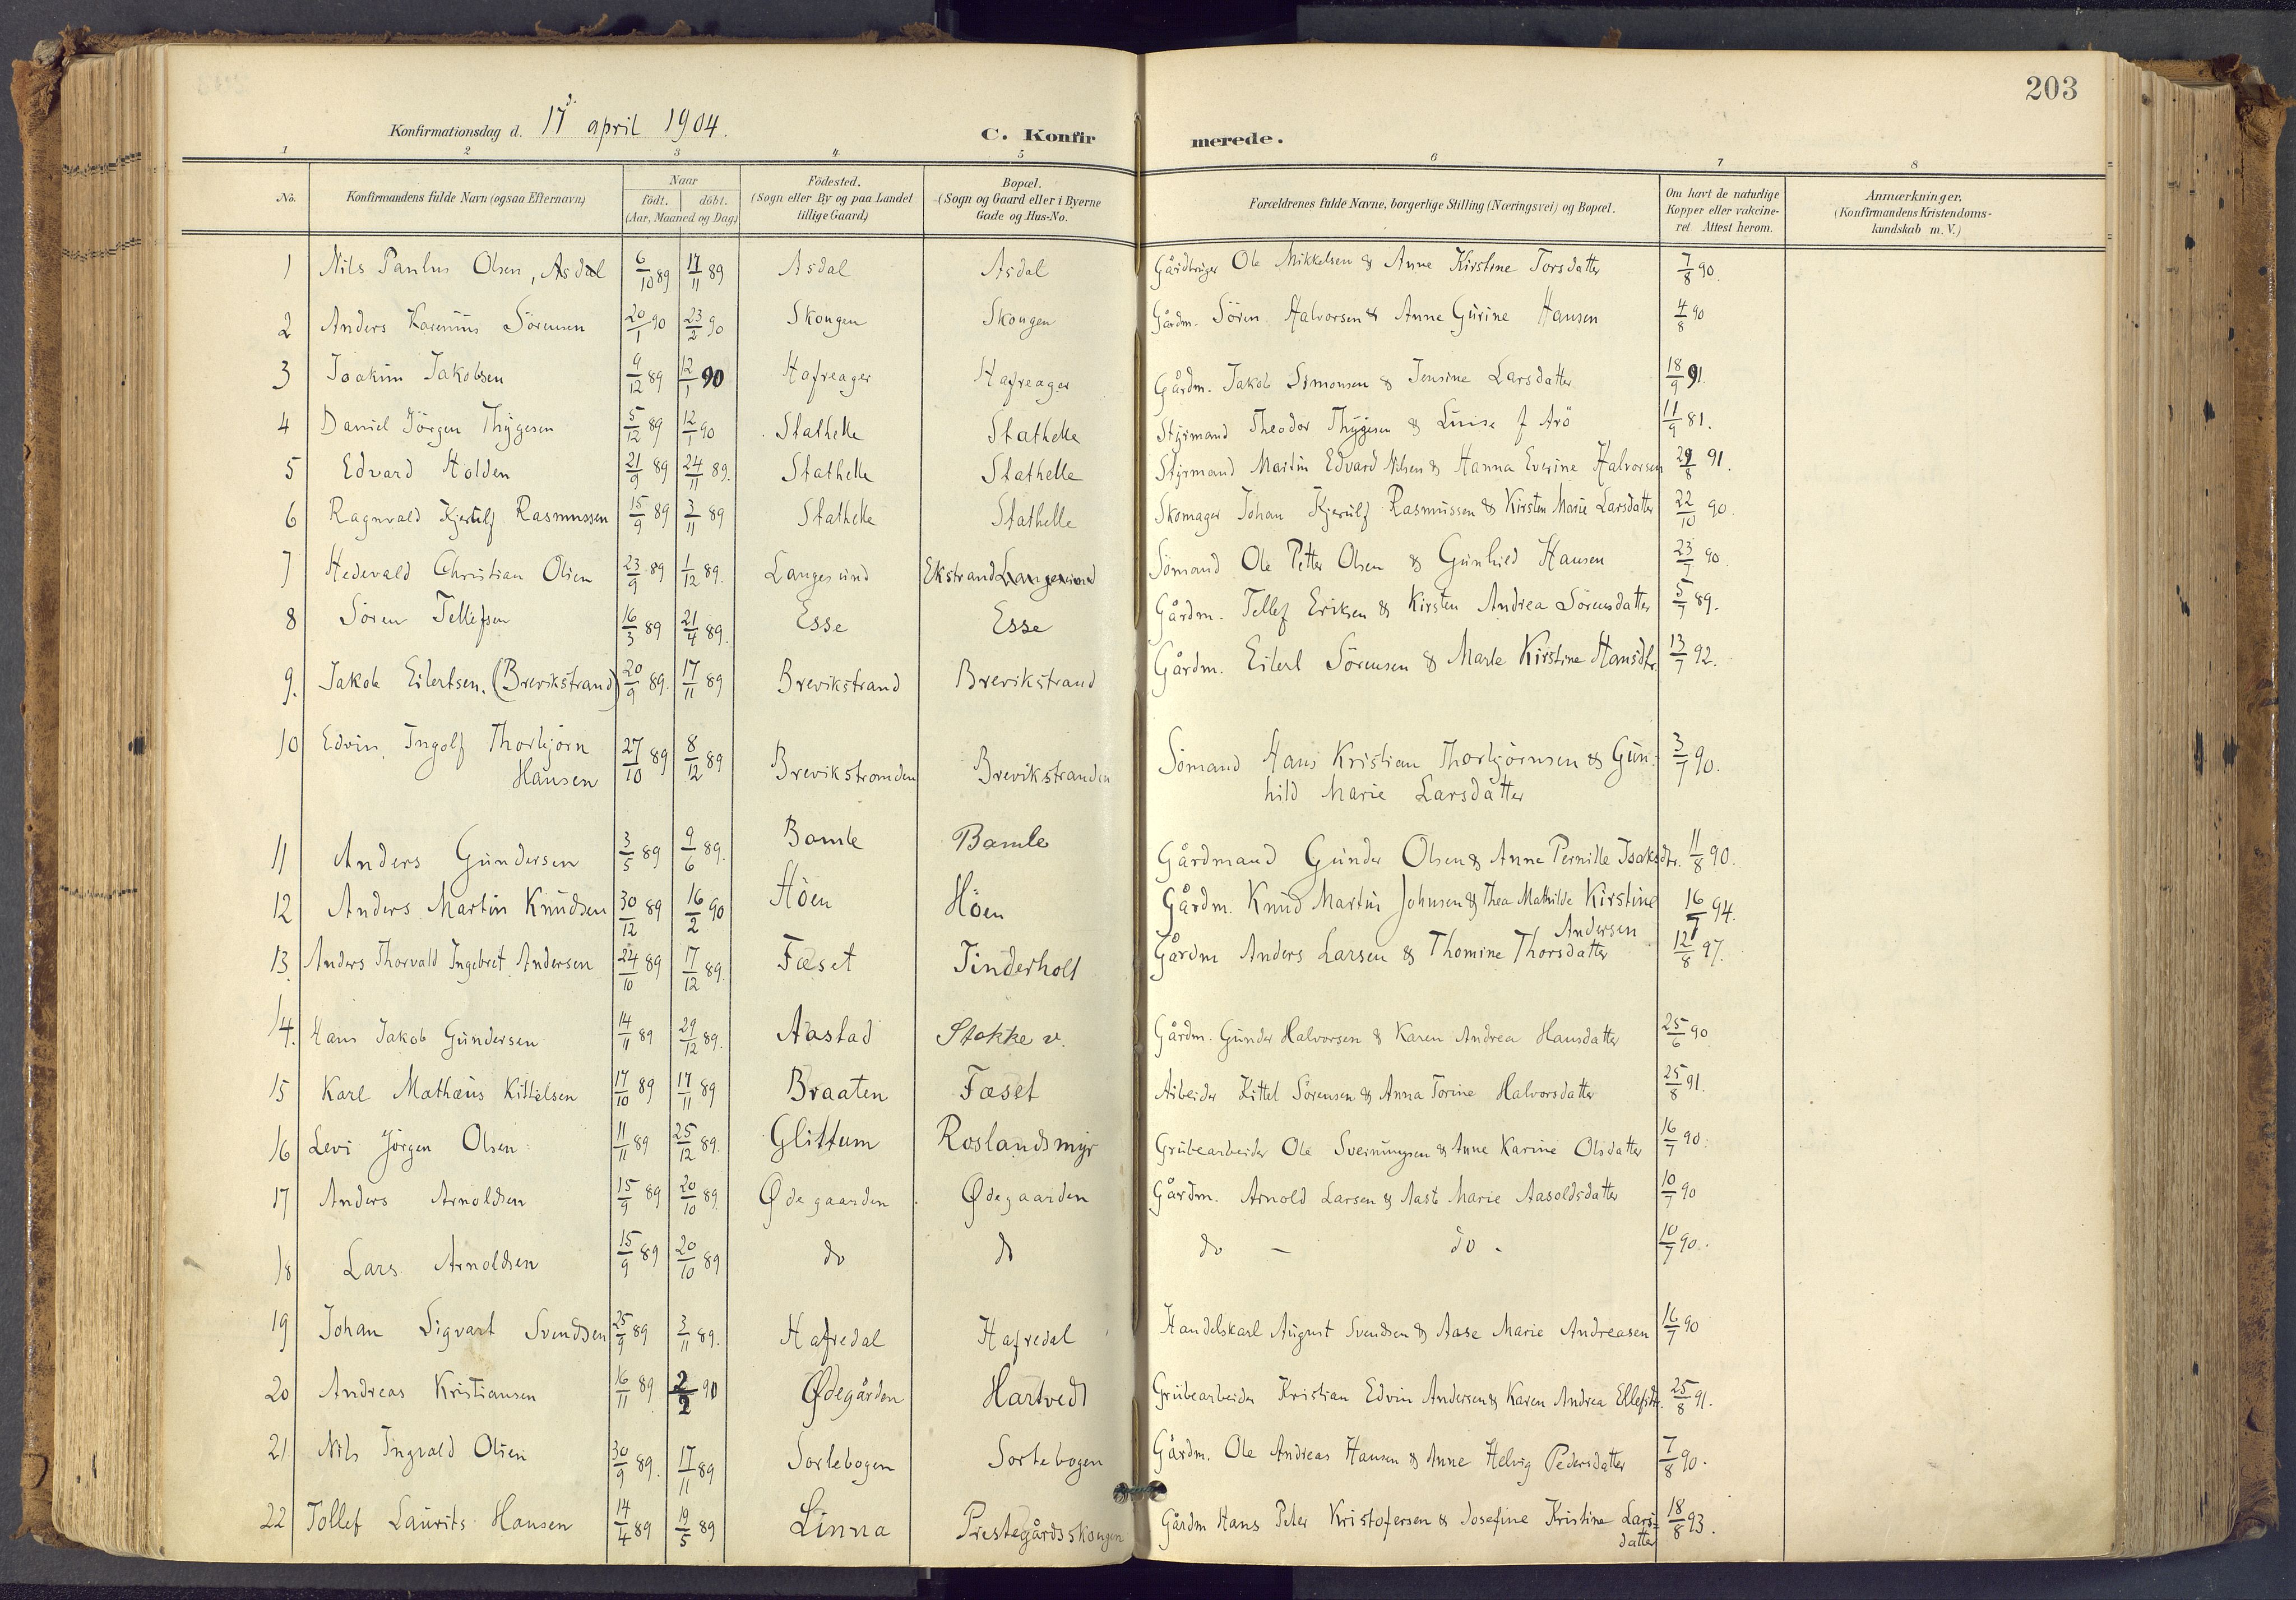 203
Konfirmationsdag d. 17d april 1904.
C. Konfirmerede.
1 2 3 4 5 6 7 8
No. Konfirmandens fulde Navn (ogsaa Efternavn) Naar født. døbt. (Aar, Maaned og Dag) Fødested. (Sogn eller By og paa Landet tillige Gaard) Bopæl. (Sogn og Gaard eller i Byerne Gade og Hus-No. Forældrenes fulde Navne, borgerlige Stilling (Næringsvei) og Bopæl. Om havt de naturlige Kopper eller vakcineret Attest herom. Anmærkninger. (Konfirmandens Kristendomskundskab m. V.)
1 Nils Paulus Olsen, Asdal 6/10 89 17/11 89 Asdal Asdal Gårdbruger Ole Mikkelsen & Anne Kirstine Torsdatter 7/8 90.
2 Anders Karenius Sörensen 20/1 90 23/2 90 Skougen Skougen Gårdm. Sören Halvorsen & Anne Gurine Hansen 4/8 90
3 Joakim Jakobsen 9/12 89 12/1 90 Hafreager Hafreager Gårdm. Jakob Simonsen & Jensine Larsdatter 18/9 91.
4 Daniel Jörgen Thygesen 5/12 89 12/1 90 Stathelle Stathelle Styrmand Theodor Thygesen & Luise f Arö 11/9 81.
5 Edvard Holden 21/9 89 24/11 89. Stathelle Stathelle Styrmand Martin Edvard Nilsen & Hanna Everine Halvorsen 29/8 91.
6 Ragnvald Kjerulf Rasmussen 15/9 89 3/11 89 Stathelle Stathelle Skomager Johan Kjerulf Rasmussen & Kirsten Marie Larsdatter 22/10 90.
7 Hedevald Christian Olsen 23/9 89 1/12 89. Langesund Ekstrand Langesund Sömand Ole Petter Olsen & Gunhild Hansen 23/7 90.
8 Sören Tellefsen 16/3 89 21/4 89. Esse Esse Gårdm. Tellef Eriksen & Kirsten Andrea Sörensdatter 5/7 89.
9. Jakob Eilertsen. (Brevikstrand) 20/9 89. 17/11 89 Brevikstrand Brevikstrand Gårdm. Eilert Sörensen & Marte Kirstine Hansdtr. 13/7 92.
10 Edvin Ingolf Thorbjörn 27/10 89 8/12 89 Brevikstranden Brevikstranden Sömand Hans Kristian Thorbjörnsen & Gun- 3/7 90.
Hansen hild Marie Larsdatter
11 Anders Gundersen 3/5 89 9/6 89. Bamle Bamle Gårdmand Gunder Olsen & Anne Pernille Isaksdtr. 11/8 90.
12 Anders Martin Knudsen 30/12 89 16/2 90 Höen Höen Gårdm. Knud Martin Johnsen & Thea Mathilde Kirstine 16/7 94.
Andersen
13. Anders Thorvald Ingebret Andersen 24/10 89 17/12 89. Fæset Tinderholt Gårdm Anders Larsen & Thomine Thorsdatter 12/8 97.
14. Hans Jakob Gundersen 14/11 89 29/12 89. Aastad Stokke v. Gårdm. Gunder Halvorsen & Karen Andrea Hansdatter 25/6 90
15 Karl Mathæus Kittelsen 17/10 89 17/11 89 Braaten Fæset Arbeider Kittel Sörensen & Anna Torine Halvorsdatter 25/8 91.
16 Levi Jörgen Olsen 11/11 89 25/12 89. Glittum Roslandsmyr Grubearbeider Ole Sveinungsen & Anne Karine Olsdatter 16/7 90.
17 Anders Arnoldsen 15/9 89 20/10 89. Ødegaarden Ødegaarden Gårdm. Arnold Larsen & Aaste Marie Aasoldsdatter 10/7 90
18 Lars Arnoldsen 15/9 89 20/10 89 do do do - do - 10/7 90.
19 Johan Sigvart Svendsen 25/9 89 3/11 89. Hafredal Hafredal Handelskarl August Svendsen & Aase Marie Andreasen 16/7 90
20 Andreas Kristiansen 16/11 89 2/2 90 Ødegården Hartvedt Grubearbeider Kristian Edvin Andersen & Karen Andrea Ellefsdtr. 25/8 91.
21 Nils Ingvald Olsen 30/9 89. 17/11 89 Sortebogen Sortebogen Gårdm. Ole Andreas Hansen & Anne Helvig Pedersdatter 7/8 90.
22 Tollef Laurits Hansen 14/4 89 19/5 89 Linna Prestegårdsskougen Gårdm Hans Peter Kristofersen & Josefine Kristine Lars- 18/8 93.
datter